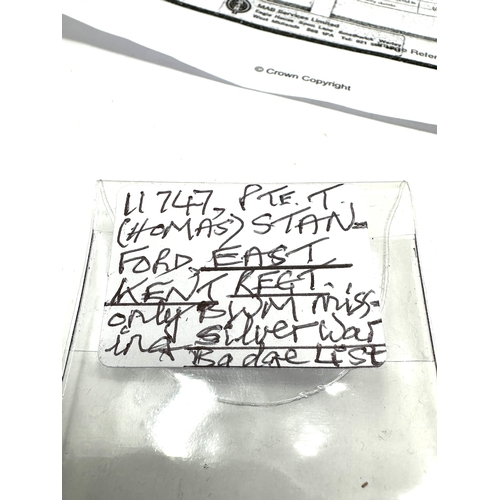 MAB Services Limited
© Crown Copyright
11747, PTE. T.
(HOMAS) STAN-
FORD EAST
KENT REGT.
only BWM miss-
ing Silver War
Badge List